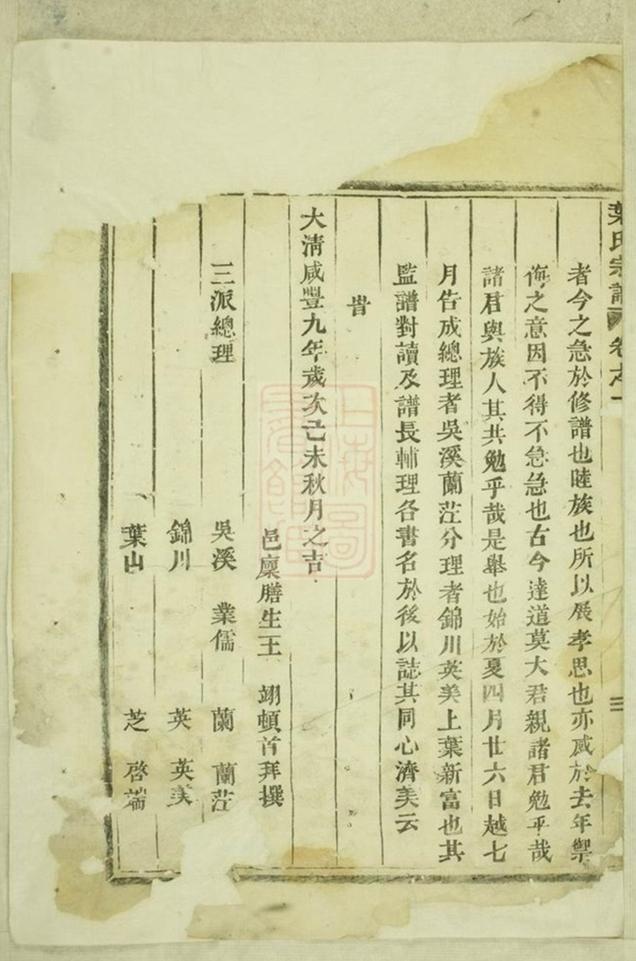 葉氏宗譜 卷之一
者今之急於修譜也睦族也所以展孝思也亦感於去年禦
侮之意因不得不急急也古今達道莫大君親諸君勉乎哉
諸君與族人其共勉乎哉是舉也始於夏四月廿六日越七
月告成總理者吳溪蘭茳分理者錦川英美上葉新富也其
監譜對讀及譜長輔理各書名於後以誌其同心濟美云
旹
大清咸豐九年歲次己未秋月之吉
邑廩膳生王 翊頓首拜撰
三派總理 吳溪 業儒 蘭 蘭茳
錦川 英 英美
葉山 芝 啓端